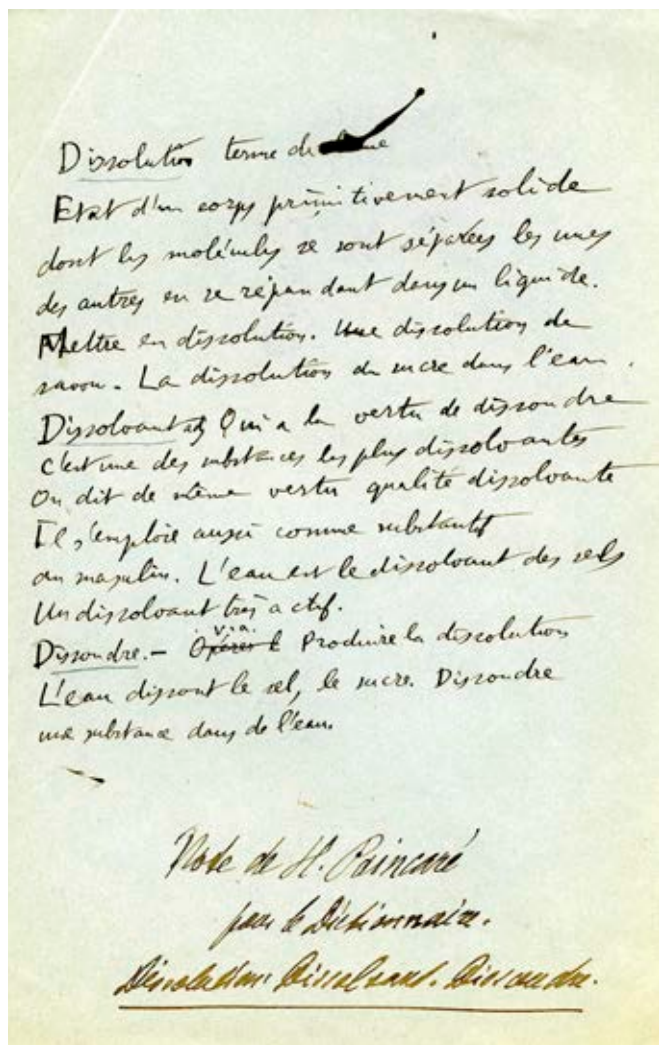 Dissolution terme de
Etat d'un corps primitivement solide
dont les molécules se sont séparées les unes
des autres en se répandant dans un liquide.
Mettre en dissolution. Une dissolution de
savon. La dissolution du sucre dans l'eau.
Dissolvant adj Qui a la vertu de dissoudre
C'est une des substances les plus dissolvantes
On dit de même vertu qualité dissolvante
Il s'emploie aussi comme substantif
au masculin. L'eau est le dissolvant des sels
Un dissolvant très actif.
v.a.
Dissoudre. — Produire la dissolution
L'eau dissout le sel, le sucre. Dissoudre
une substance dans de l'eau.
Note de H. Poincaré
pour le Dictionnaire.
Dissolution. Dissolvant. Dissoudre.